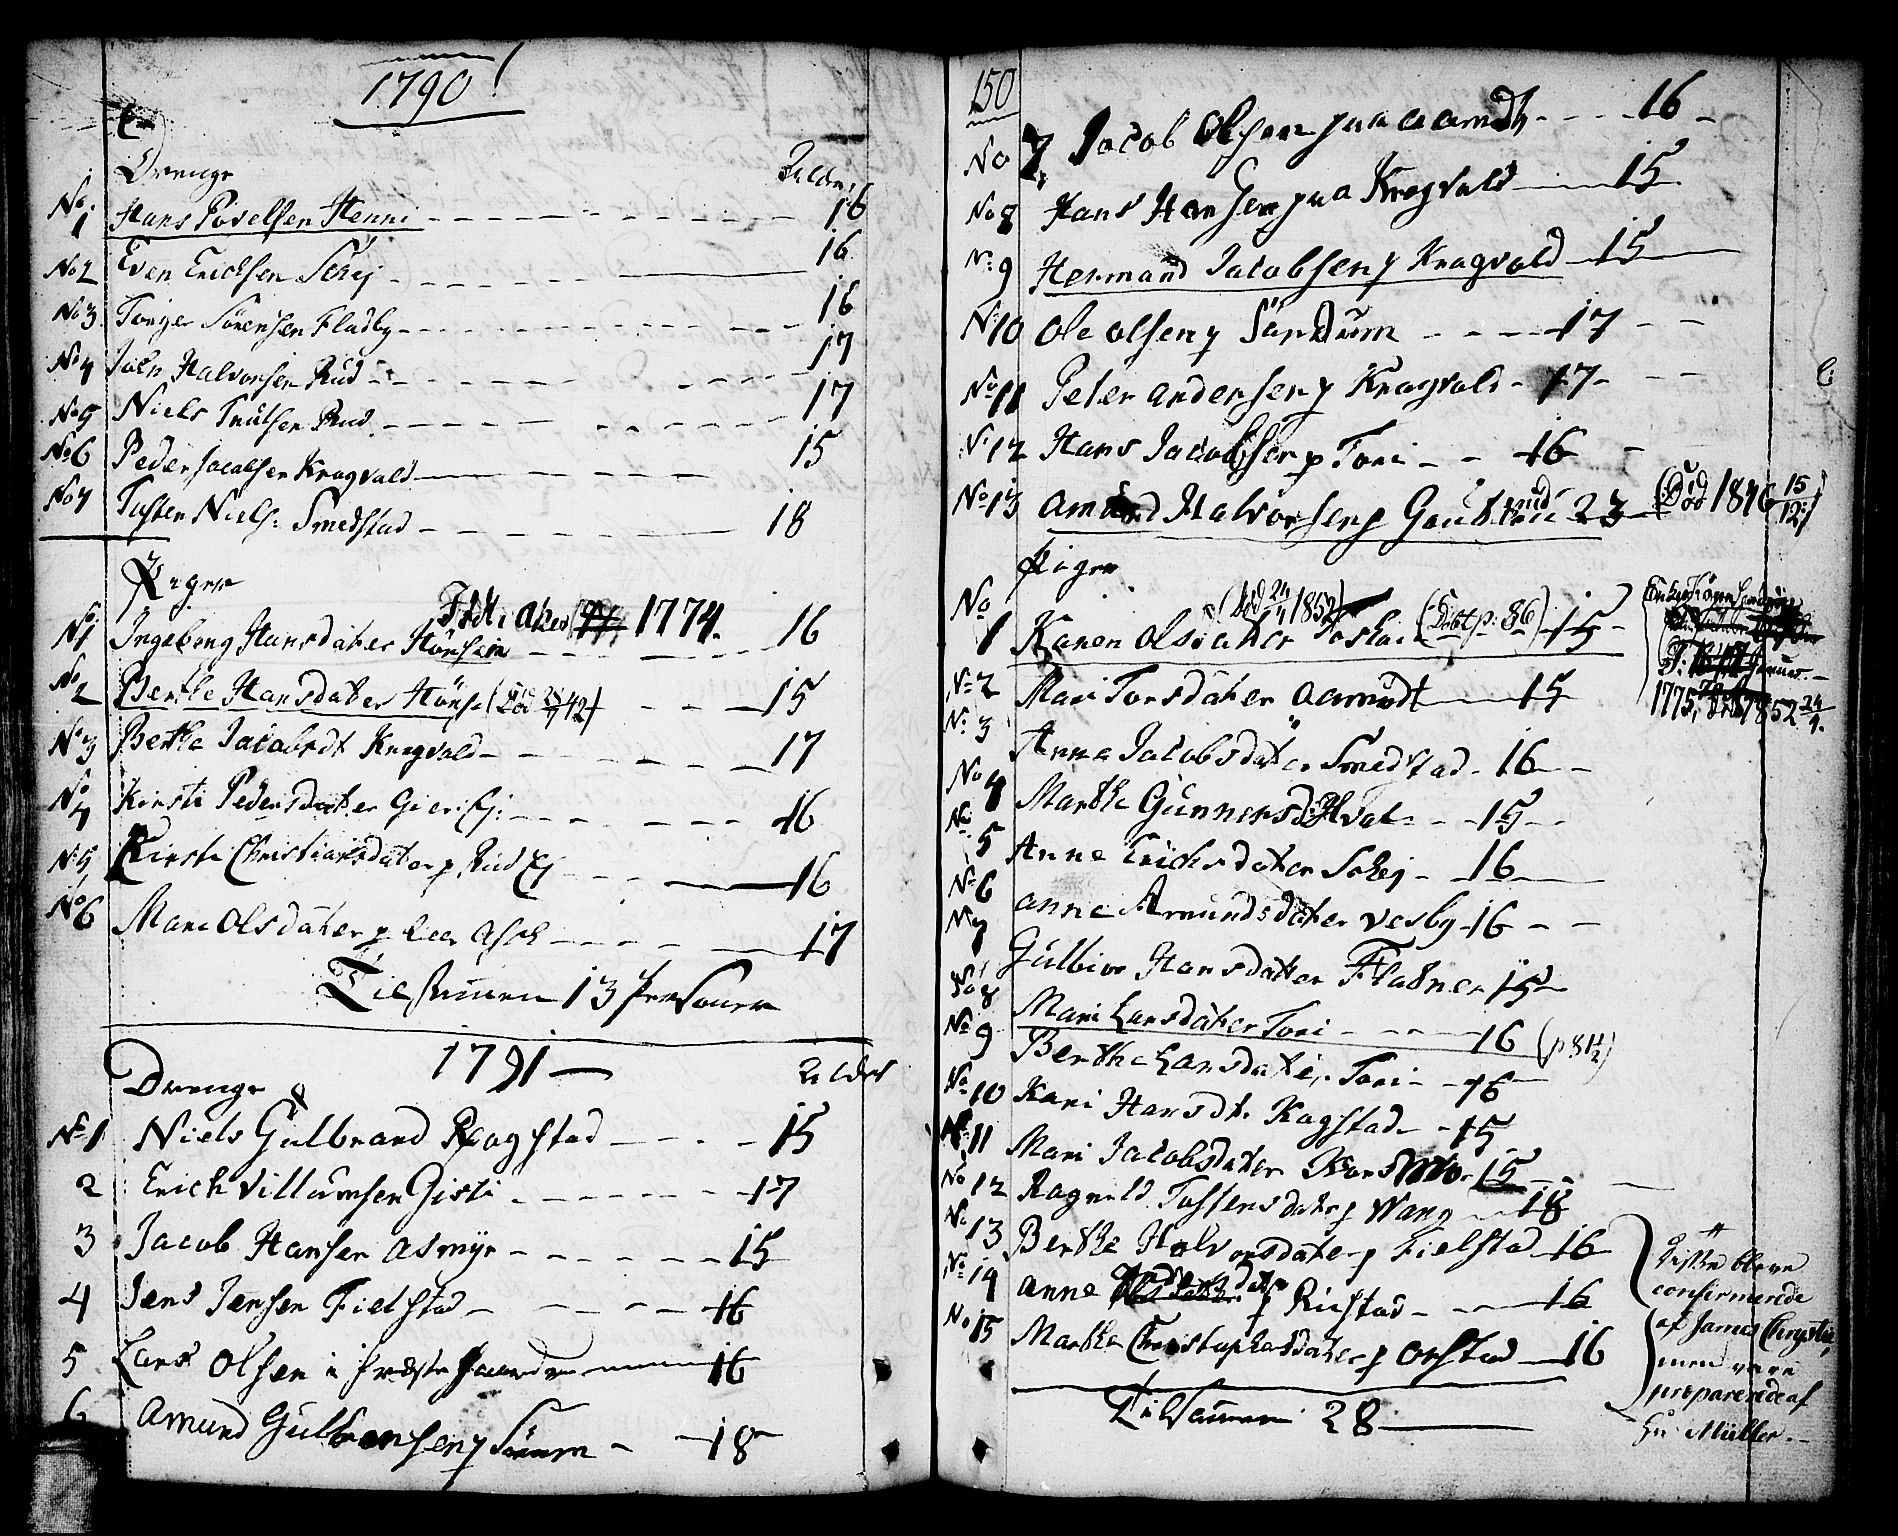 1790
Drenge Alder
No 1 Hans Povelsen Henni 16
No 2 Even Erichsen Schej 16
No 3 Torger Sörensen Fladby 16
No 4 Halvorsen Rud 17
No 5 Niels Rud 17
No 6 Peder Jacobsen Kragvald 15
No 7 Tosten Niels: Smedstad 18
Piger
Fød 1774.
No 1 Ingeborg Hansdater Hönsein 16
No 2 Berthe Hansdater Höns (Död 42) 15
No 3 Berthe Jacobsdt Kragvald 17
No 4 Kirsti Pedersdater 16
No 5 Kirsti Christiansdater p Rud Ej 16
No 6 Mari Olsdater p 17
Tilsammen 13 Personer
1791
Drenge Alder
No 1 Niels Gulbrand Kogstad 15
2 Erich Villumsen Gisti 17
3 Jacob Hansen Asmyr 15
4 Jens Jensen Fielstad 16
5 Lars Olsen i Præstegaarden 16
6 Amund Gulbransen p 18
150
No 7 Jacob Olsen paa Aamodt 16
No 8 Hans Hansen paa Kragvald 15
No 9 Hermand Jacobsen p Kragvald 15
No 10 Ole Olsen p Sündum 17
No 11 Peter Andersen p Kragvald 17
No 12 Hans Jacobsen p Tori 16
No 13 Amund Halvorsen p 23 (Död 1846 15/12)
Piger
(död 24/4 1852)
No 1 Karen Olsdater (Döbt p: 86) 15
1775, 1852 24/4.
No 2 Mari Torsdater Aamodt 15
No 3 Anne Jacobsdater Smedstad 16
No 4 Marthe Gunnersd: Hval 15
No 5 Anne Erichsdater Schej 16
No 6 Anne Amundsdater Vesby 16
No 7 Gulbior Hansdatter Fladner 15
No 8 Mari Larsdater Tori 16 (p 81½)
No 9 Berthe Larsdater Tori 16
No 10 Kari Hansdt. Kogstad 15
No 11 Mari Jacobsdater 15
No 12 Ragnild Tostensdater p Wang 18
No 13 Berthe Halvorsdater p Fielstad 16
No 14 Anne p Rustad 16
No 15 Marthe Christophersdater p Orstad 16
Tilsammen 28
Disse bleve
confirmerede
af James Chrystie,
men vare
præparerede af
Hr: Müller.